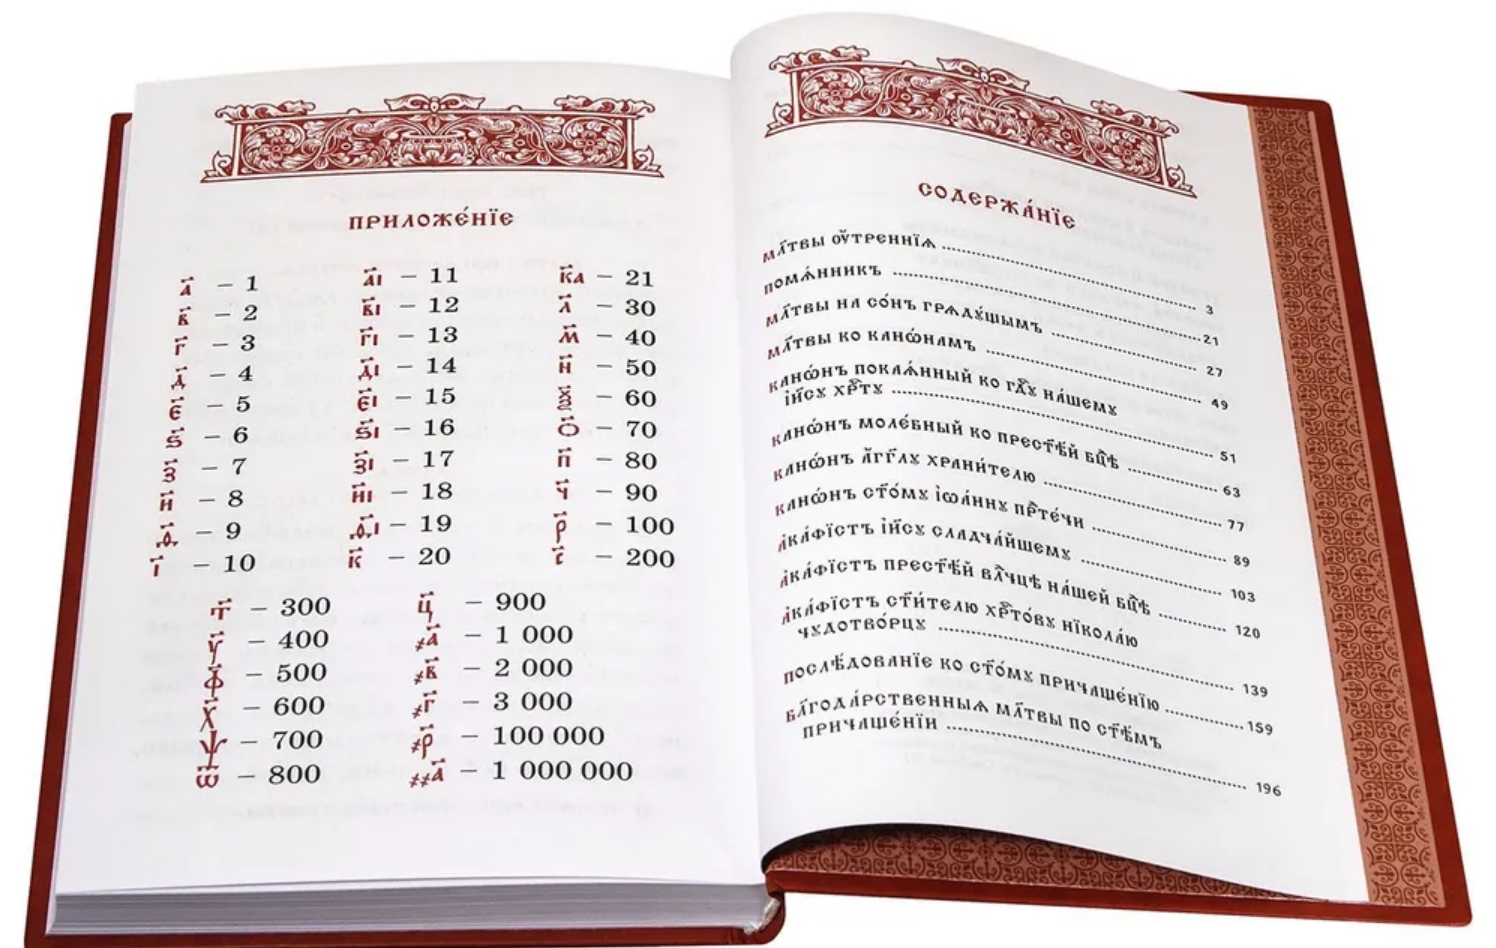 приложе́нїе
а҃ – 1
в҃ – 2
г҃ – 3
д҃ – 4
є҃ – 5
ѕ҃ – 6
з҃ – 7
и҃ – 8
ѳ҃ – 9
і҃ – 10
а҃і – 11
в҃і – 12
г҃і – 13
д҃і – 14
є҃і – 15
ѕ҃і – 16
з҃і – 17
и҃і – 18
ѳ҃і – 19
к҃ – 20
к҃а – 21
л҃ – 30
м҃ – 40
н҃ – 50
ѯ҃ – 60
ѻ҃ – 70
п҃ – 80
ч҃ – 90
р҃ – 100
с҃ – 200
т҃ – 300
у҃ – 400
ф҃ – 500
х҃ – 600
ѱ҃ – 700
ѿ҃ – 800
ц҃ – 900
҂а҃ – 1 000
҂в҃ – 2 000
҂г҃ – 3 000
҂р҃ – 100 000
҂҂а҃ – 1 000 000
содержа́нїе
мл҃твы ᲂу҆́треннїѧ ........ 3
помѧ́нникъ ........ 21
мл҃твы на со́нъ грѧдꙋ́щымъ ........ 27
мл҃твы ко канѡ́намъ ........ 49
канѡ́нъ покаѧ́нный ко гдⷭ҇ꙋ на́шемꙋ
і҆и҃сꙋ хрⷭ҇тꙋ̀ ........ 51
канѡ́нъ моле́бный ко прест҃ѣ́й бц҃ѣ ........ 63
канѡ́нъ а҆́гг҃лꙋ храни́телю ........ 77
канѡ́нъ ст҃о́мꙋ і҆ѡа́ннꙋ прⷣте́чи ........ 89
а҆ка́фїстъ і҆и҃сꙋ сладча́йшемꙋ ........ 103
а҆ка́фїстъ прест҃ѣ́й влⷣчцѣ на́шей бц҃ѣ ........ 120
а҆ка́фїстъ ст҃и́телю хрⷭ҇то́вꙋ нїкола́ю
чꙋдотво́рцꙋ ........ 139
послѣ́дованїе ко ст҃о́мꙋ причаще́нїю ........ 159
бл҃года́рственныѧ мл҃твы по ст҃ѣ́мъ
причаще́нїи ........ 196